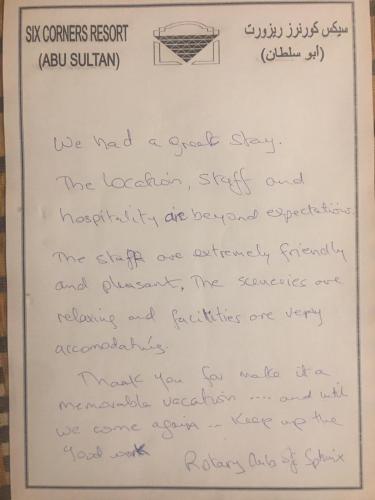 SIX CORNERS RESORT
(ABU SULTAN)
سيكس كورنرز ريزورت
(أبو سلطان)
We had a great stay.
The location, staff and
hospitality are beyond expectations.
The staff are extremely friendly
and pleasant, The sceneries are
relaxing and facilities are very
accomodating.
Thank you for make it a
memorable vacation .... and until
we come again .. Keep up the
Good work
Rotary Club of Sphinx